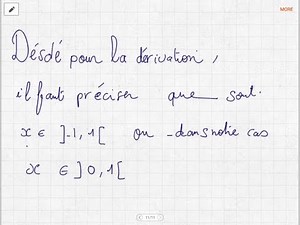 MORE
Désdé pour la dérivation,
il faut préciser que soit
x ∈ ]-1, 1[ ou dans notre cas
x ∈ ]0, 1[